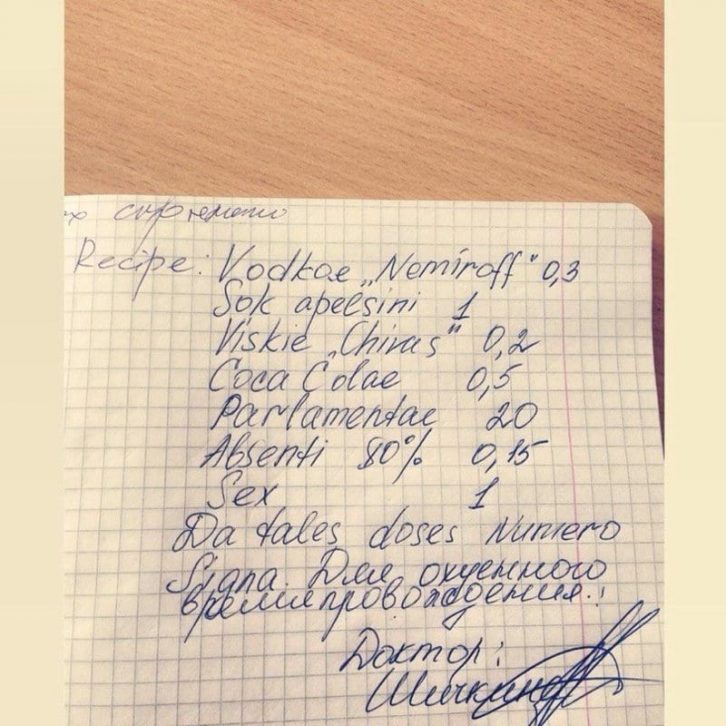 Recipe: Vodkae „Nemiroff" 0,3
Sok apelsini 1
Viskie „Chivas" 0,2
Coca Colae 0,5
Parlamentae 20
Absenti 80% 0,15
Sex 1
Da tales doses Numero
Signa. Для охуенного
времяпровождения!
Доктор: